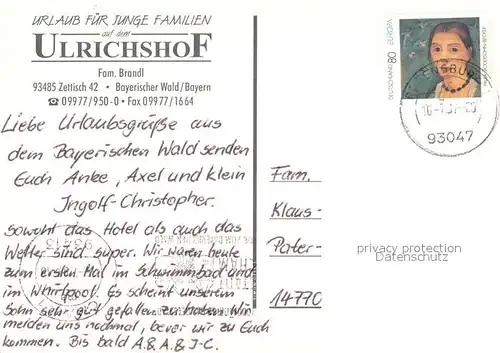 URLAUB FÜR JUNGE FAMILIEN
auf dem
ULRICHSHOF
Fam. Brandl
93485 Zettisch 42 • Bayerischer Wald/Bayern
☎ 09977/950-0 • Fax 09977/1664
Liebe Urlaubsgrüße aus
dem Bayerischen Wald senden
Euch Anke, Axel und klein
Ingolf-Christopher.
Sowohl das Hotel als auch das
Wetter sind super. Wir waren heute
zum ersten Mal im Schwimmbad und
im Whirlpool. Es scheint unserem
Sohn sehr gut gefallen zu haben. Wir
melden uns nochmal, bevor wir zu Euch
kommen. Bis bald A. & A. & I-C.
DEUTSCHLAND 80
EUROPA
93047
Fam.
Klaus-
Pater-
14770
privacy protection
Datenschutz
93413